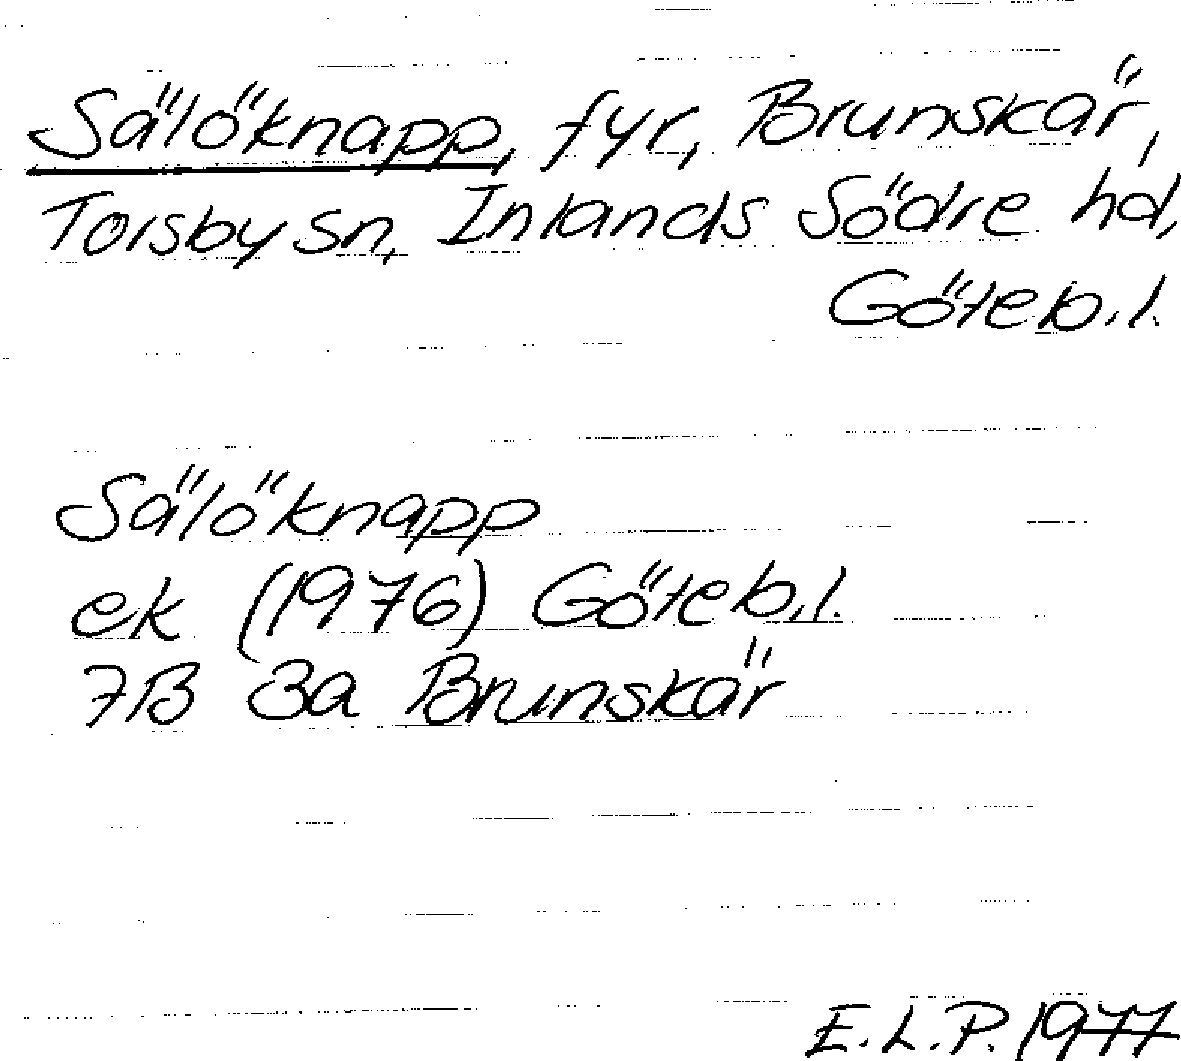 Sälöknapp, fyr, Brunskär,
Torsby sn, Inlands Södre hd,
Göteb.l.
Sälöknapp
ek (1976) Göteb.l.
7B 3a Brunskär
E.L.P. 1977